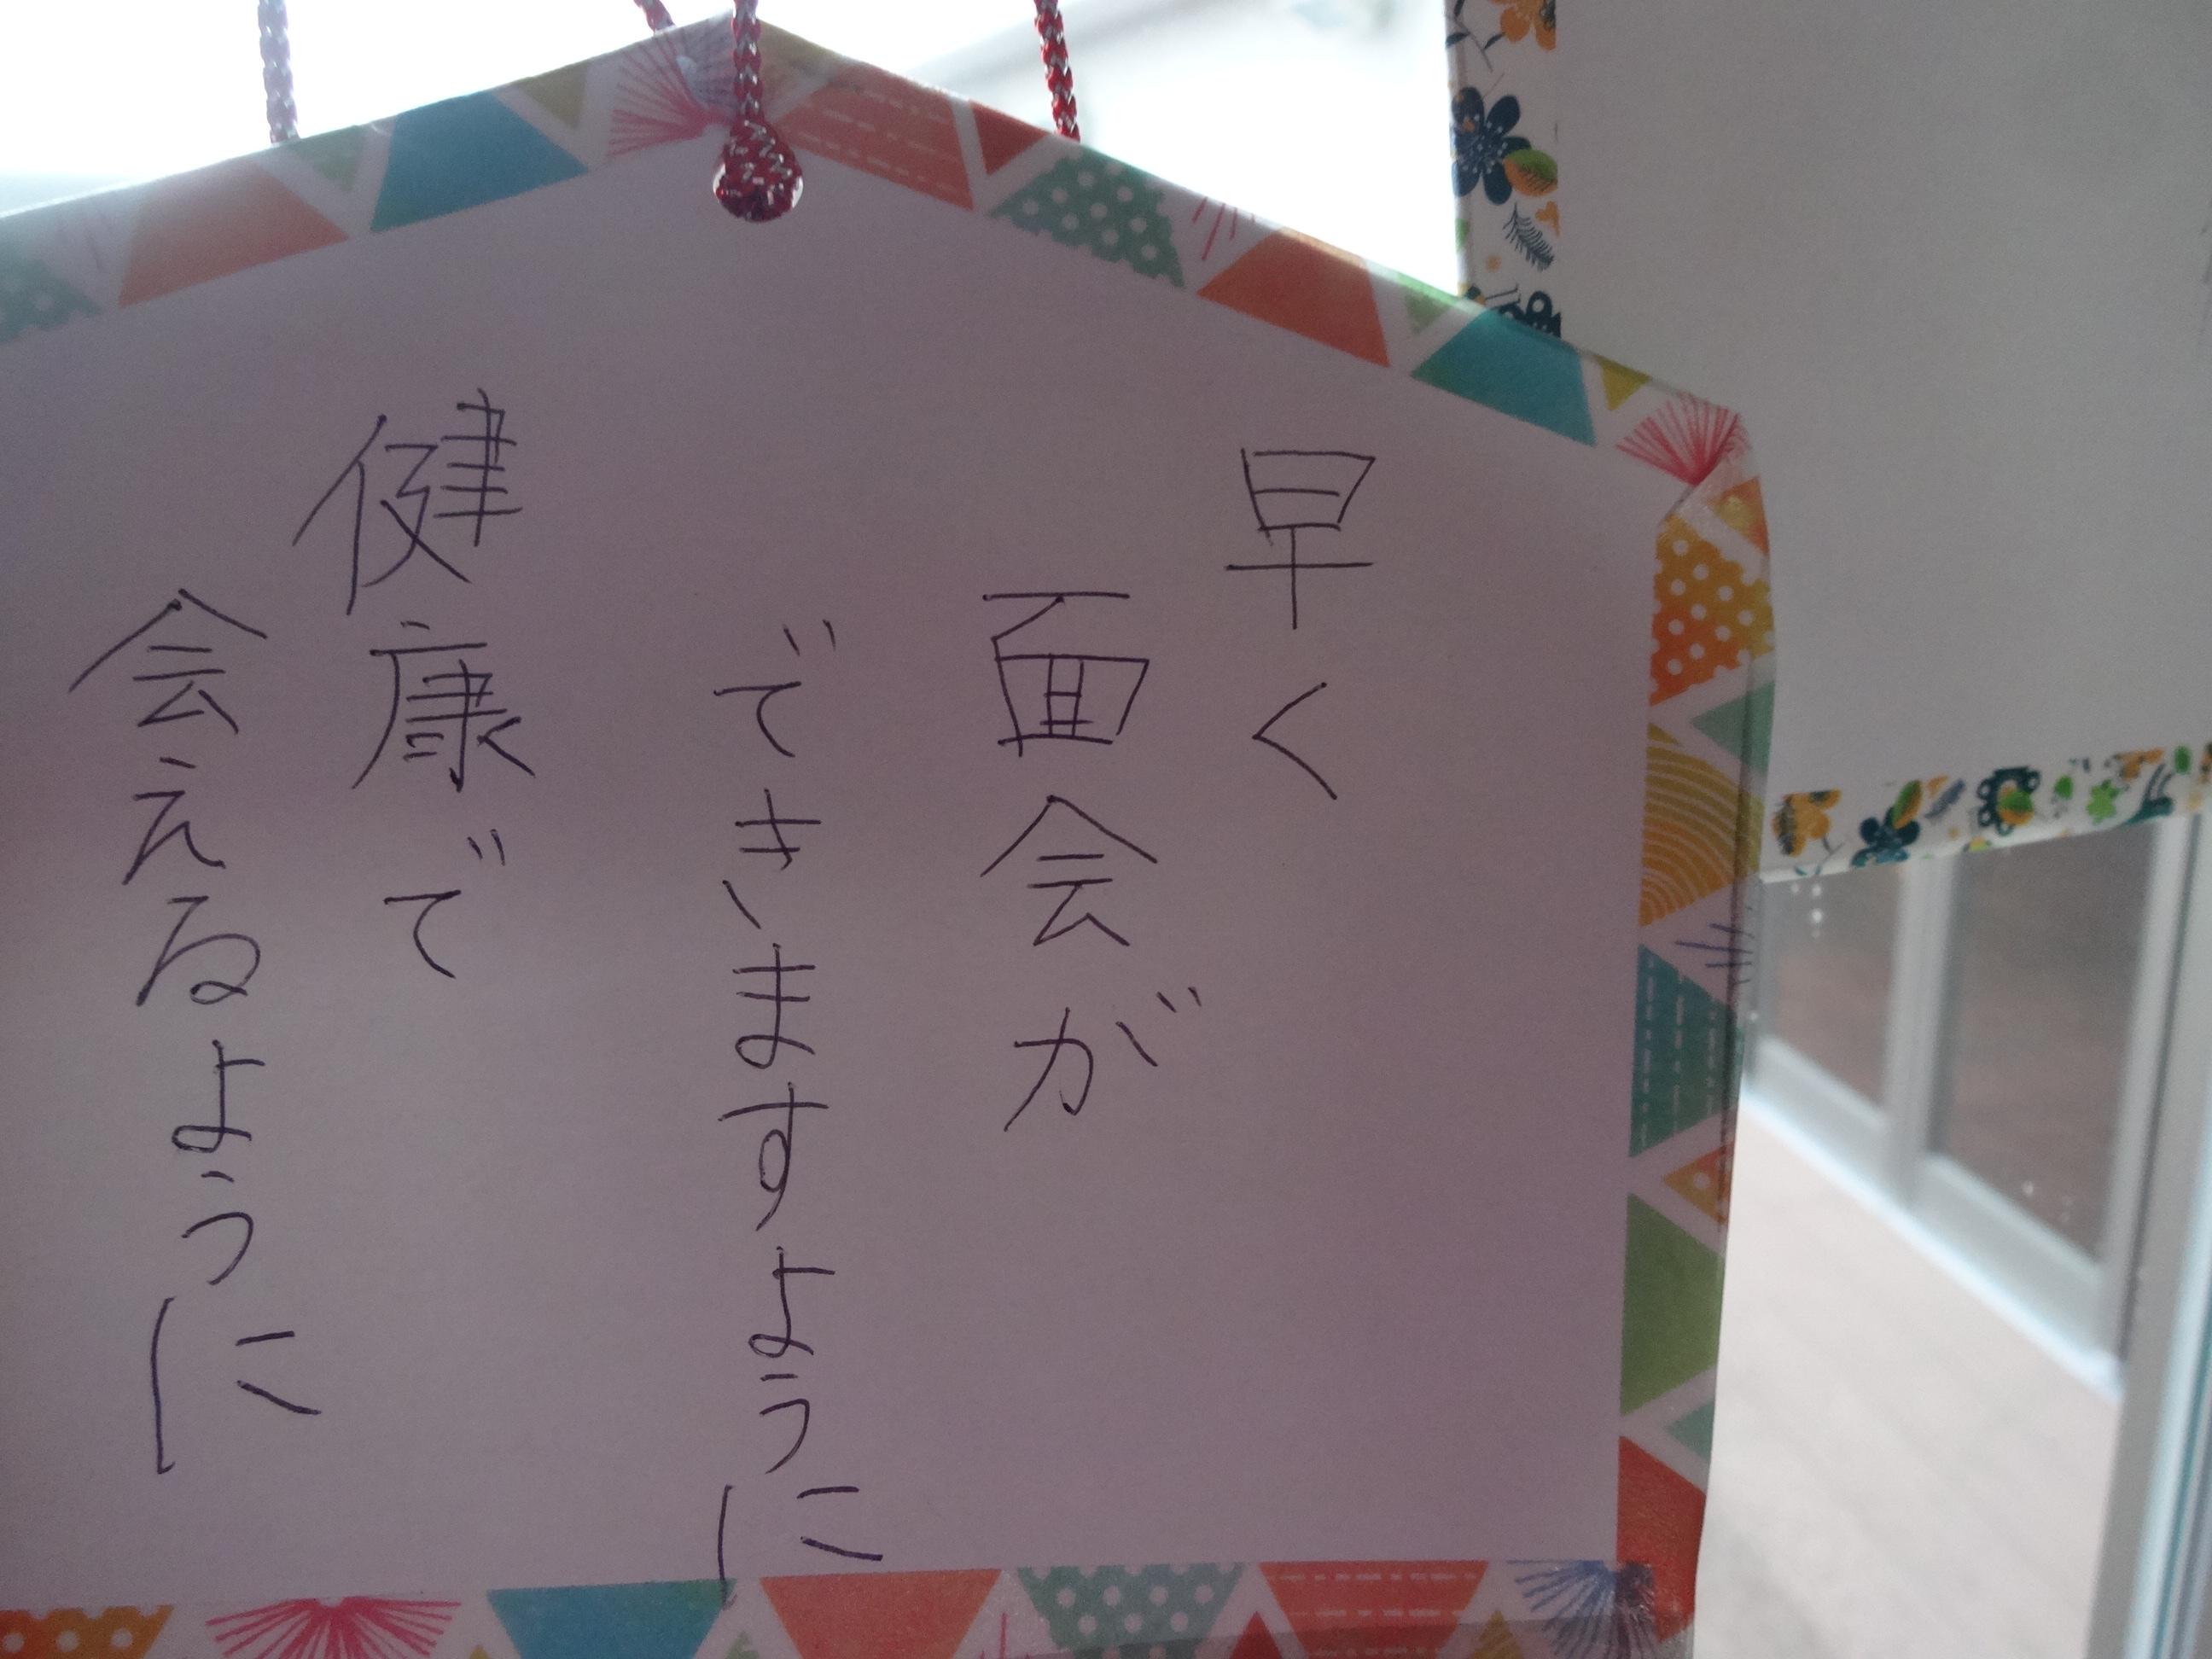 早く
面会が
できますように
健康で
会えるように